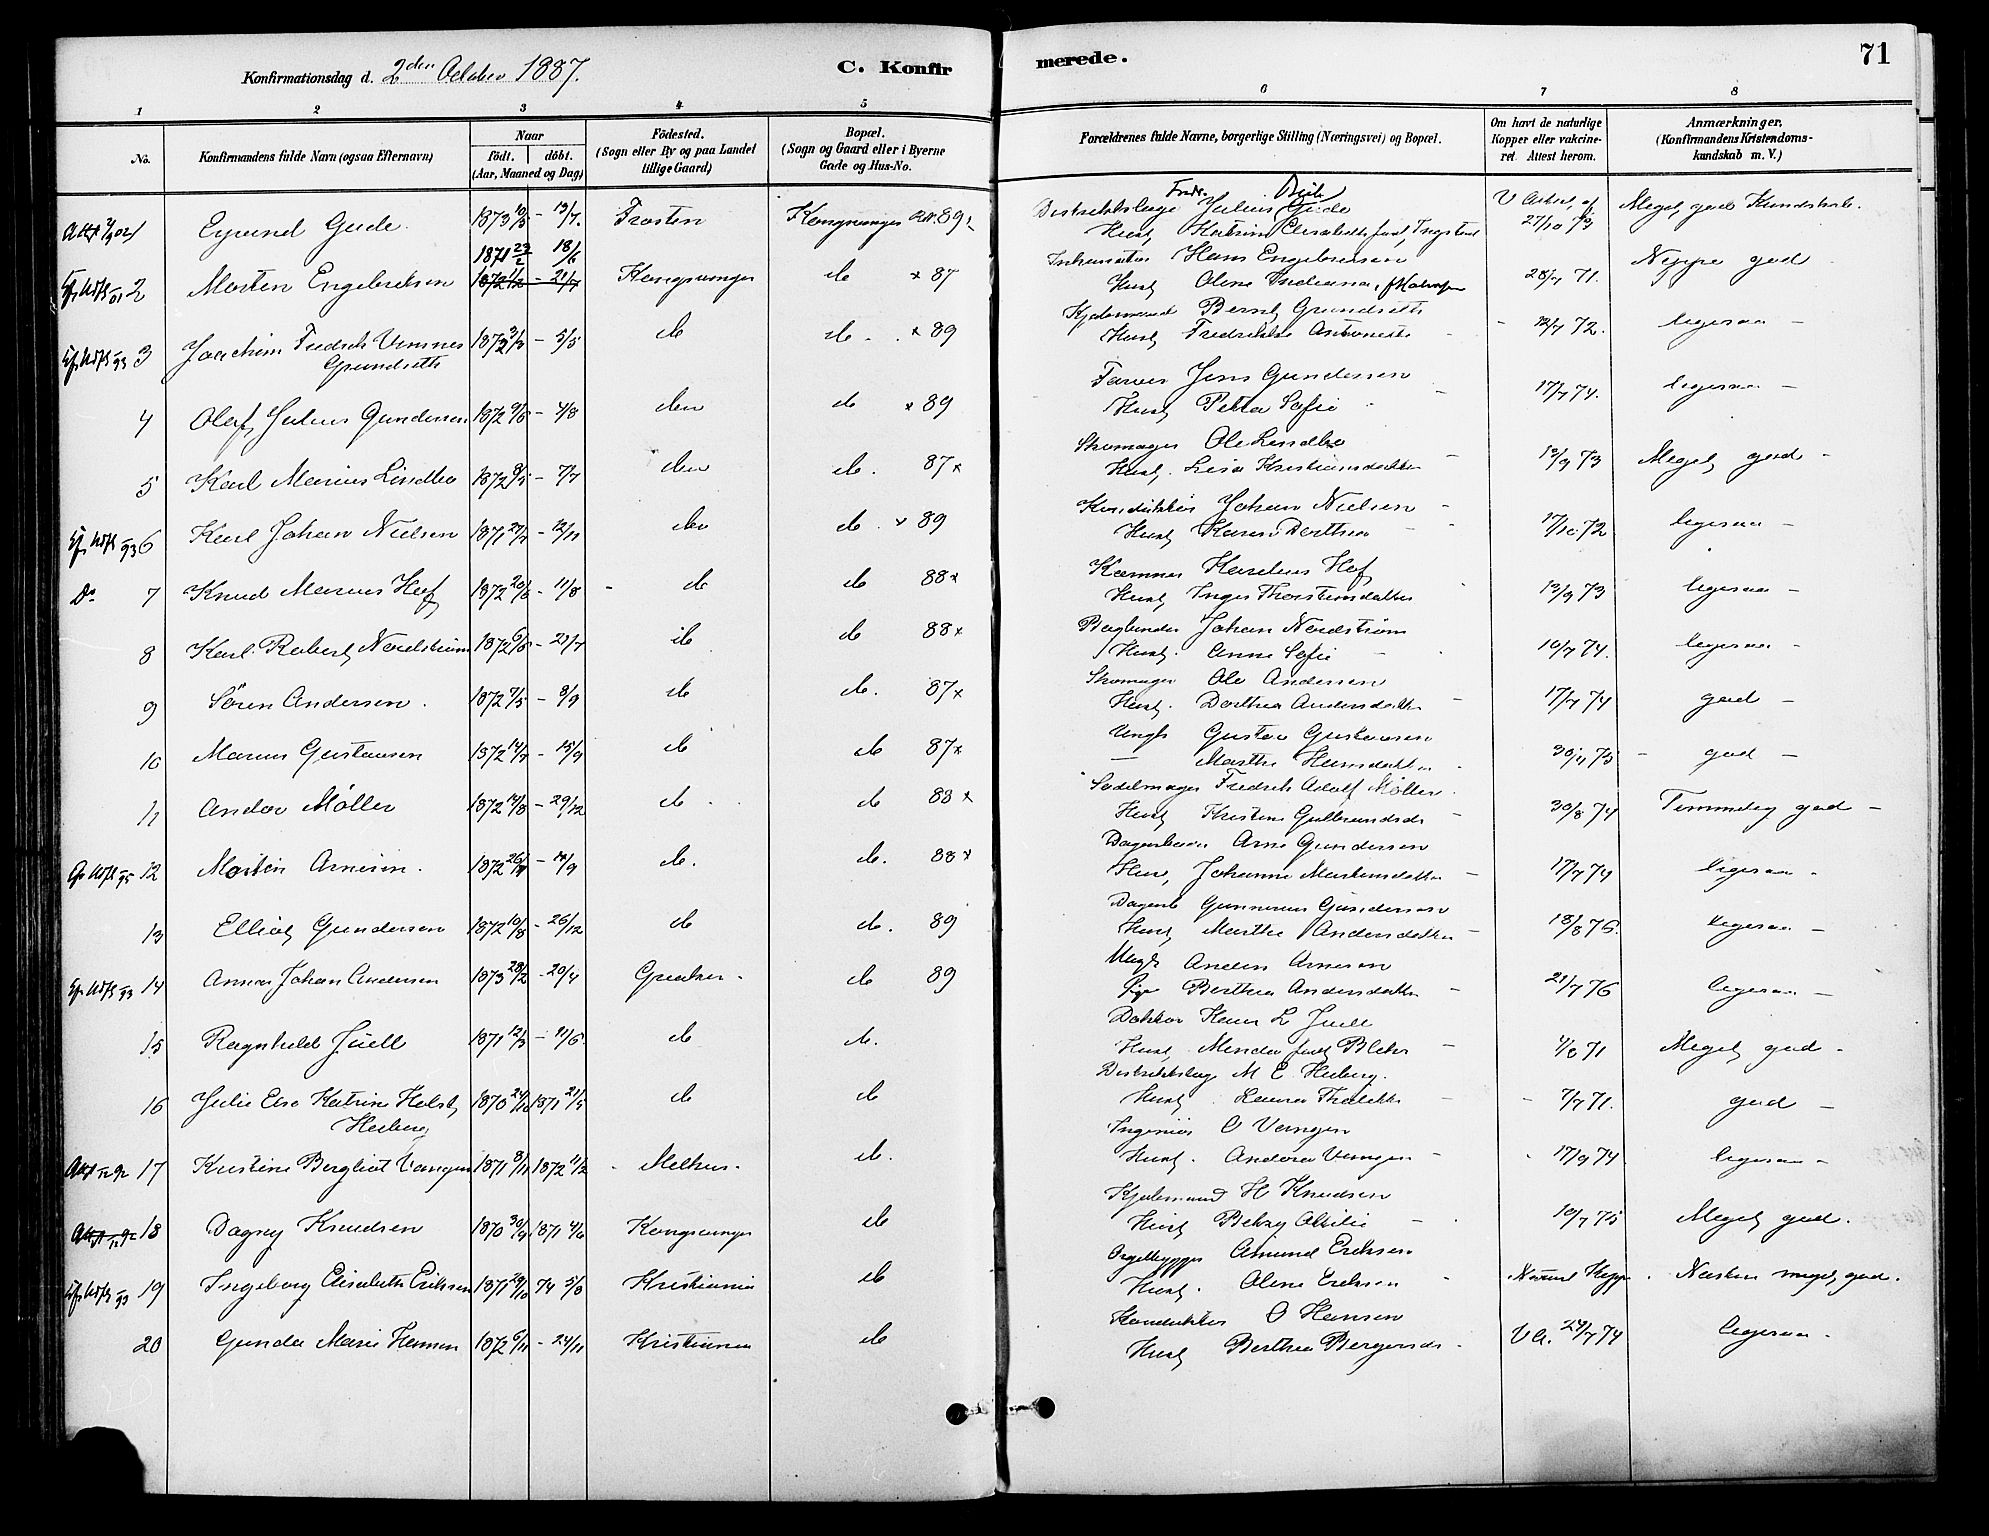 Konfirmationsdag d. 2den October 1887.
C. Konfirmerede.
71
1 2 3 4 5 6 7 8
No.
Konfirmandens fulde Navn (ogsaa Efternavn)
Naar
födt. döbt.
(Aar, Maaned og Dag)
Födested.
(Sogn eller By og paa Landet tillige Gaard)
Bopæl.
(Sogn og Gaard eller i Byerne Gade og Hus-No.
Forældrenes fulde Navne, borgerlige Stilling (Næringsvei) og Bopæl.
Om havt de naturlige Kopper eller vakcineret Attest herom.
Anmærkninger.
(Konfirmandens Kristendomskundskab m. V.)
1 Eyvind Gude. 1873 - 13/7. Frosten Kongsvinger 89
Distriktslæge Julius Gude
27/10 73 Meget god Kundskab.
1871 23/2 18/6
2 Morten Engebretsen 1872 11/2 - 21/7 Kongsvinger do × 87
Hans Engebretsen
Hust Oline
28/7 71. Neppe god
3 Joachim Fredrik Vemnes Grundseth - 5/5 do do. × 89
Kjøbmand Bernt Grundseth
Hust Fredrikke Antonette
12/7 72. ligesaa -
4 Olaf Julius Gundersen 1872 9/5 - 4/8 do do × 89
Farver Jens Gundersen
Hust Petra Sofie
17/7 74. ligesaa -
5 Karl Marius Lindbo 1872 8/5 - 7/7 do do. 87 ×
Skomager Ole Lindbo
Hust. Lisa Kristiansdatter
12/9 73 Meget god -
6 Karl Johan Nielsen 1871 27/7 - 12/11 do do × 89
Konduktør Johan Nielsen
Hust Karen Berthea
17/10 72 ligesaa -
Do 7 Knud Marius Hof 1872 20/6 - 11/8 do do 88 ×
Hust Inger Thorstensdatter
12/9 73 ligesaa -
8 Karl Robert Nordstrøm 1872 6/5 - 21/7 do do 88 ×
Bogbinder Johan Nordstrøm
Hust. Anne Sofie
10/7 74. ligesaa -
9 Sören Andersen. 1872 7/5 - 8/9 do do. 87 ×
Skomager Ole Andersen
Hust. Dorthea Andersdatter
17/7 74 god -
10 Marius Gustavsen 1872 14/7 - 15/9 do do 87 ×
Ungk Gustav Gustavsen
Marthe Hansdatter
30/11 75 god -
11 Andor Möller 1872 14/8 - 29/12 do do 88 ×
Sadelmager Fredrik Adolf Möller
Hust Kristine Gulbrandsdr
30/8 74 Temmelig god -
12 Morten Arnesen. 1872 - 14/9 do. do. 88 ×
Arne Gundersen
Hus, Johanne Mortensdatter
17/7 74 ligesaa -
13 Elliot Gundersen 1872 10/8 - 26/12 do do. 89
Dagarb Gunnerius Gundersen
Hust Marthe Andersdatter
18/8 76. ligesaa -
14 Johan Andersen 1873 28/2 - 20/4 Grue do 89
Ungk Anders Arnesen
Pige Berthea Andersdatter
21/7 76 ligesaa -
15 Ragnhild Juell 1871 12/3 - 11/6. do do.
Doktor L Juell
4/8 71 Meget god -
16 Julie Else Katrine Holst Heiberg 1870 24/11 1871 21/5 do do
Distriktslæge M E Heiberg.
Hust. Laura
7/7 71. god -
17 Kristine Bergliot Vangen 1871 8/11 1872 11/2 Melhus. do.
Ingeniör O Vangen
Hust. Andora Vangen
17/9 74. ligesaa -
18 Dagny Knudsen 1870 30/9 1871 4/6 Kongsvinger do
Kjøbmand H Knudsen
Hust Betzy Ottilie
10/7 75 Meget god.
19 Ingeborg Elisabeth Eriksen 1871 29/10 74 5/8 Kristiania do
Orgelbygger Amund Eriksen
Hust. Oline Eriksen
Næsten meget god.
20 Gunda Marie Hansen 1872 6/11 - 24/11 Kristiania do
Konduktør O Hansen
Hust Berthea Bergersdr
V A. 24/7 74 ligesaa.